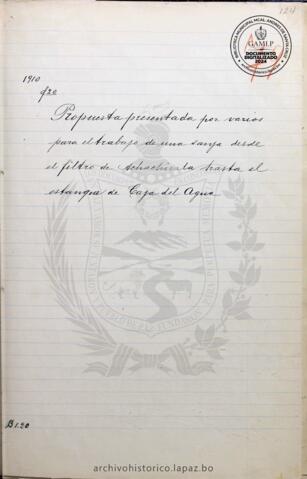 124
BIBLIOTECA MUNICIPAL MCAL. ANDRÉS DE SANTA CRUZ
GAMLP
DOCUMENTO
DIGITALIZADO
2024
1910
Propuesta presentada por varios
para el trabajo de una sanja desde
el filtro de Achachicala hasta el
estanque de Caja del Agua
B 1.20
archivohistorico.lapaz.bo